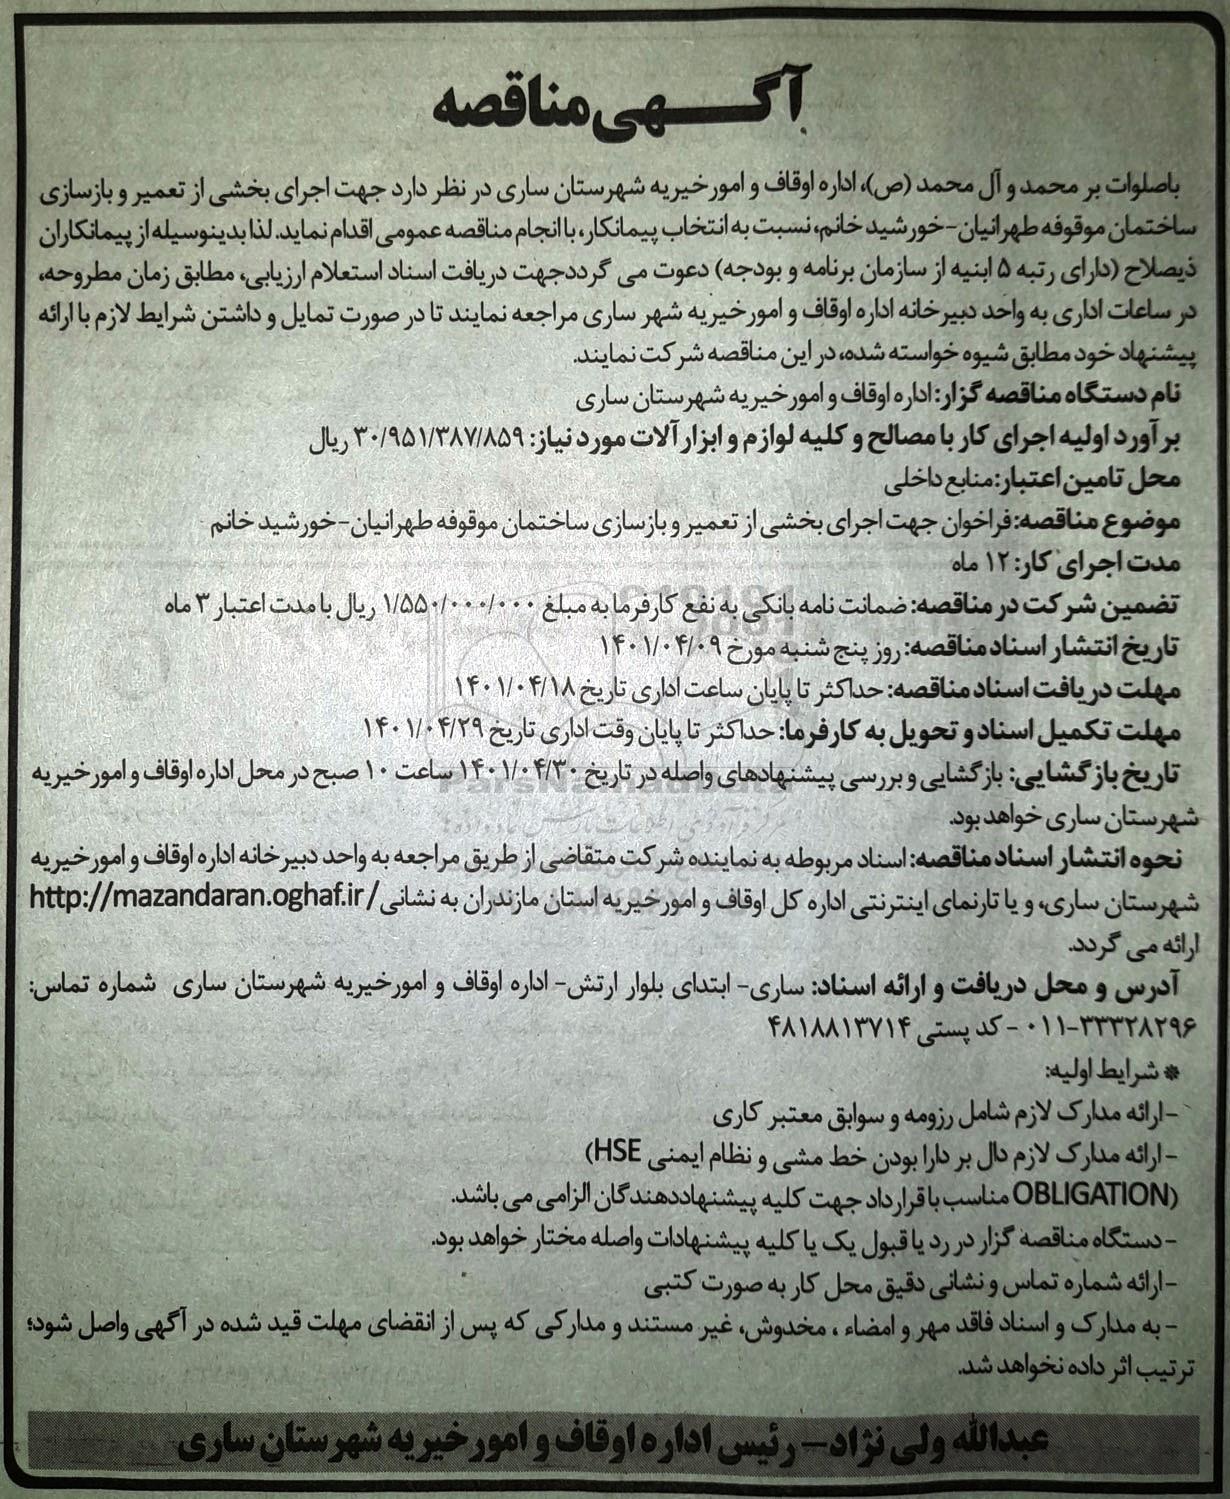 آگهی مناقصه
باصلوات بر محمد و آل محمد (ص)، اداره اوقاف و امور خیریه شهرستان ساری در نظر دارد جهت اجرای بخشی از تعمیر و بازسازی
ساختمان موقوفه طهرانیان-خورشید خانم، نسبت به انتخاب پیمانکار، با انجام مناقصه عمومی اقدام نماید. لذا بدینوسیله از پیمانکاران
ذیصلاح (دارای رتبه ۵ ابنیه از سازمان برنامه و بودجه) دعوت می گرددجهت دریافت اسناد استعلام ارزیابی، مطابق زمان مطروحه،
در ساعات اداری به واحد دبیرخانه اداره اوقاف و امور خیریه شهر ساری مراجعه نمایند تا در صورت تمایل و داشتن شرایط لازم با ارائه
پیشنهاد خود مطابق شیوه خواسته شده، در این مناقصه شرکت نمایند.
نام دستگاه مناقصه گزار: اداره اوقاف و امور خیریه شهرستان ساری
بر آورد اولیه اجرای کار با مصالح و کلیه لوازم و ابزار آلات مورد نیاز: ۳۰/۹۵۱/۳۸۷/۸۵۹ ریال
محل تامین اعتبار: منابع داخلی
موضوع مناقصه: فراخوان جهت اجرای بخشی از تعمیر و بازسازی ساختمان موقوفه طهرانیان-خورشید خانم
مدت اجرای کار: ۱۲ ماه
تضمین شرکت در مناقصه: ضمانت نامه بانکی به نفع کارفرما به مبلغ ۱/۵۵۰/۰۰۰/۰۰۰ ریال با مدت اعتبار ۳ ماه
تاریخ انتشار اسناد مناقصه: روز پنج شنبه مورخ ۱۴۰۱/۰۴/۰۹
مهلت دریافت اسناد مناقصه: حداکثر تا پایان ساعت اداری تاریخ ۱۴۰۱/۰۴/۱۸
مهلت تکمیل اسناد و تحویل به کارفرما: حداکثر تا پایان وقت اداری تاریخ ۱۴۰۱/۰۴/۲۹
تاریخ بازگشایی: بازگشایی و بررسی پیشنهادهای واصله در تاریخ ۱۴۰۱/۰۴/۳۰ ساعت ۱۰ صبح در محل اداره اوقاف و امور خیریه
شهرستان ساری خواهد بود.
نحوه انتشار اسناد مناقصه: اسناد مربوطه به نماینده شرکت متقاضی از طریق مراجعه به واحد دبیرخانه اداره اوقاف و امور خیریه
شهرستان ساری، و یا تارنمای اینترنتی اداره کل اوقاف و امور خیریه استان مازندران به نشانی http://mazandaran.oghaf.ir/
ارائه می گردد.
آدرس و محل دریافت و ارائه اسناد: ساری- ابتدای بلوار ارتش- اداره اوقاف و امور خیریه شهرستان ساری شماره تماس:
۰۱۱-۳۳۳۲۸۲۹۶ - کد پستی ۴۸۱۸۸۱۳۷۱۴
* شرایط اولیه:
-ارائه مدارک لازم شامل رزومه و سوابق معتبر کاری
-ارائه مدارک لازم دال بر دارا بودن خط مشی و نظام ایمنی HSE)
(OBLIGATION مناسب با قرارداد جهت کلیه پیشنهاددهندگان الزامی می باشد.
-دستگاه مناقصه گزار در رد یا قبول یک یا کلیه پیشنهادات واصله مختار خواهد بود.
-ارائه شماره تماس و نشانی دقیق محل کار به صورت کتبی
-به مدارک و اسناد فاقد مهر و امضاء ، مخدوش، غیر مستند و مدارکی که پس از انقضای مهلت قید شده در آگهی واصل شود؛
ترتیب اثر داده نخواهد شد.
عبدالله ولی نژاد – رئیس اداره اوقاف و امور خیریه شهرستان ساری